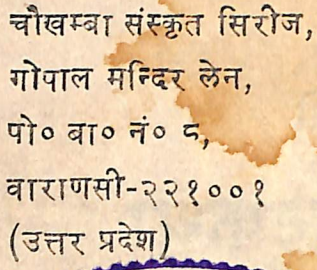 चौखम्बा संस्कृत सिरीज,
गोपाल मन्दिर लेन,
पो० बा० नं० ८,
वाराणसी-२२१००१
(उत्तर प्रदेश)